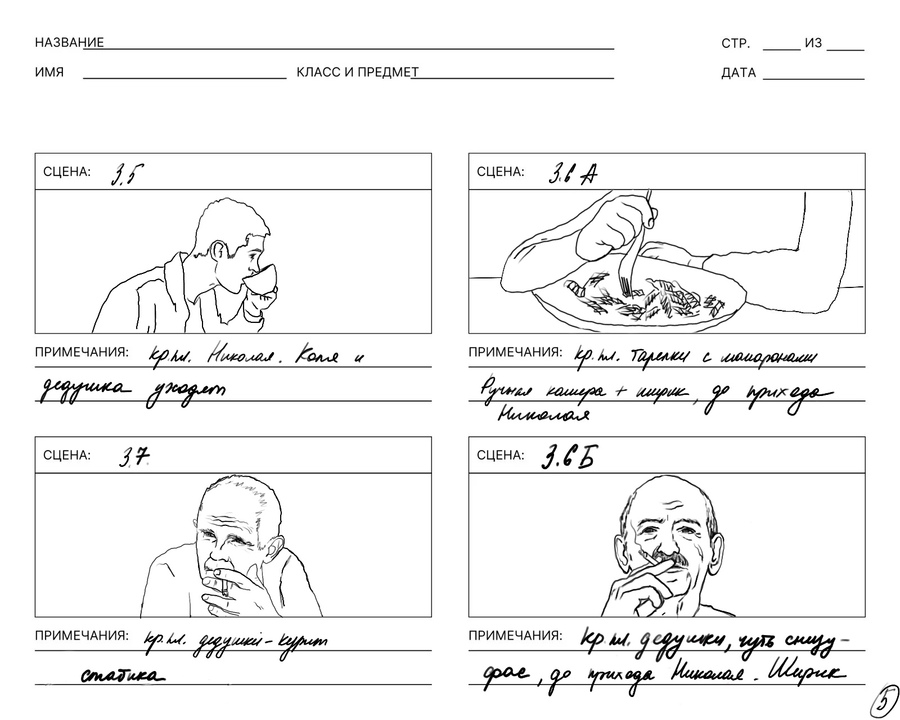 НАЗВАНИЕ
СТР. ИЗ
ИМЯ КЛАСС И ПРЕДМЕТ
ДАТА
СЦЕНА: 3.5
ПРИМЕЧАНИЯ: кр.пл. Николая. Коля и
дедушка уходят
СЦЕНА: 3.6 А
ПРИМЕЧАНИЯ: кр.пл. Тарелки с макаронами
Ручная камера + ширик, до прихода
Николая
СЦЕНА: 3.7.
ПРИМЕЧАНИЯ: кр.пл. дедушки - курит
статика
СЦЕНА: 3.6 Б
ПРИМЕЧАНИЯ: кр.пл. дедушки, чуть снизу -
фас, до прихода Николая. Ширик
5